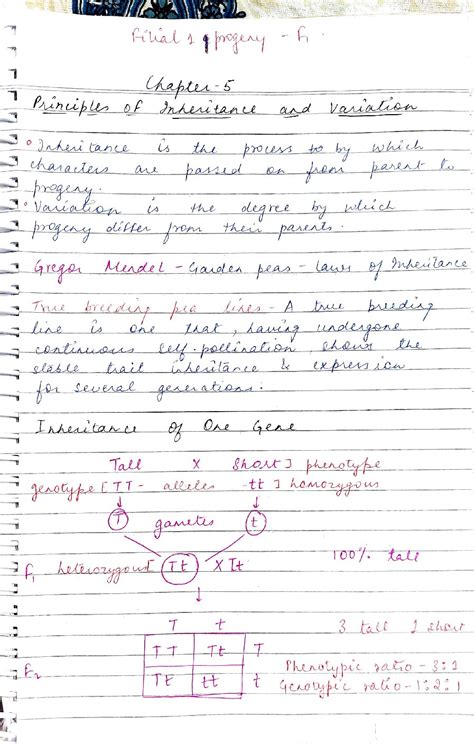 Filial 1 progeny - F1
Chapter-5
Principles of Inheritance and Variation
Inheritance is the process to by which
characters are passed on from parent to
progeny.
Variation is the degree by which
progeny differ from their parents.
Gregor Mendel - Garden peas - laws of Inheritance
True breeding pea lines - A true breeding
line is one that, having undergone
continuous self-pollination shows the
stable trait inheritance & expression
for several generations.
Inheritance of One Gene
Tall X Short] phenotype
genotype [TT - alleles - tt] homozygous
T gametes t
F1 heterozygous Tt X Tt 100% tall
T t 3 tall 1 short
TT Tt T
F2 Phenotypic ratio - 3:1
Tt tt t Genotypic ratio - 1:2:1